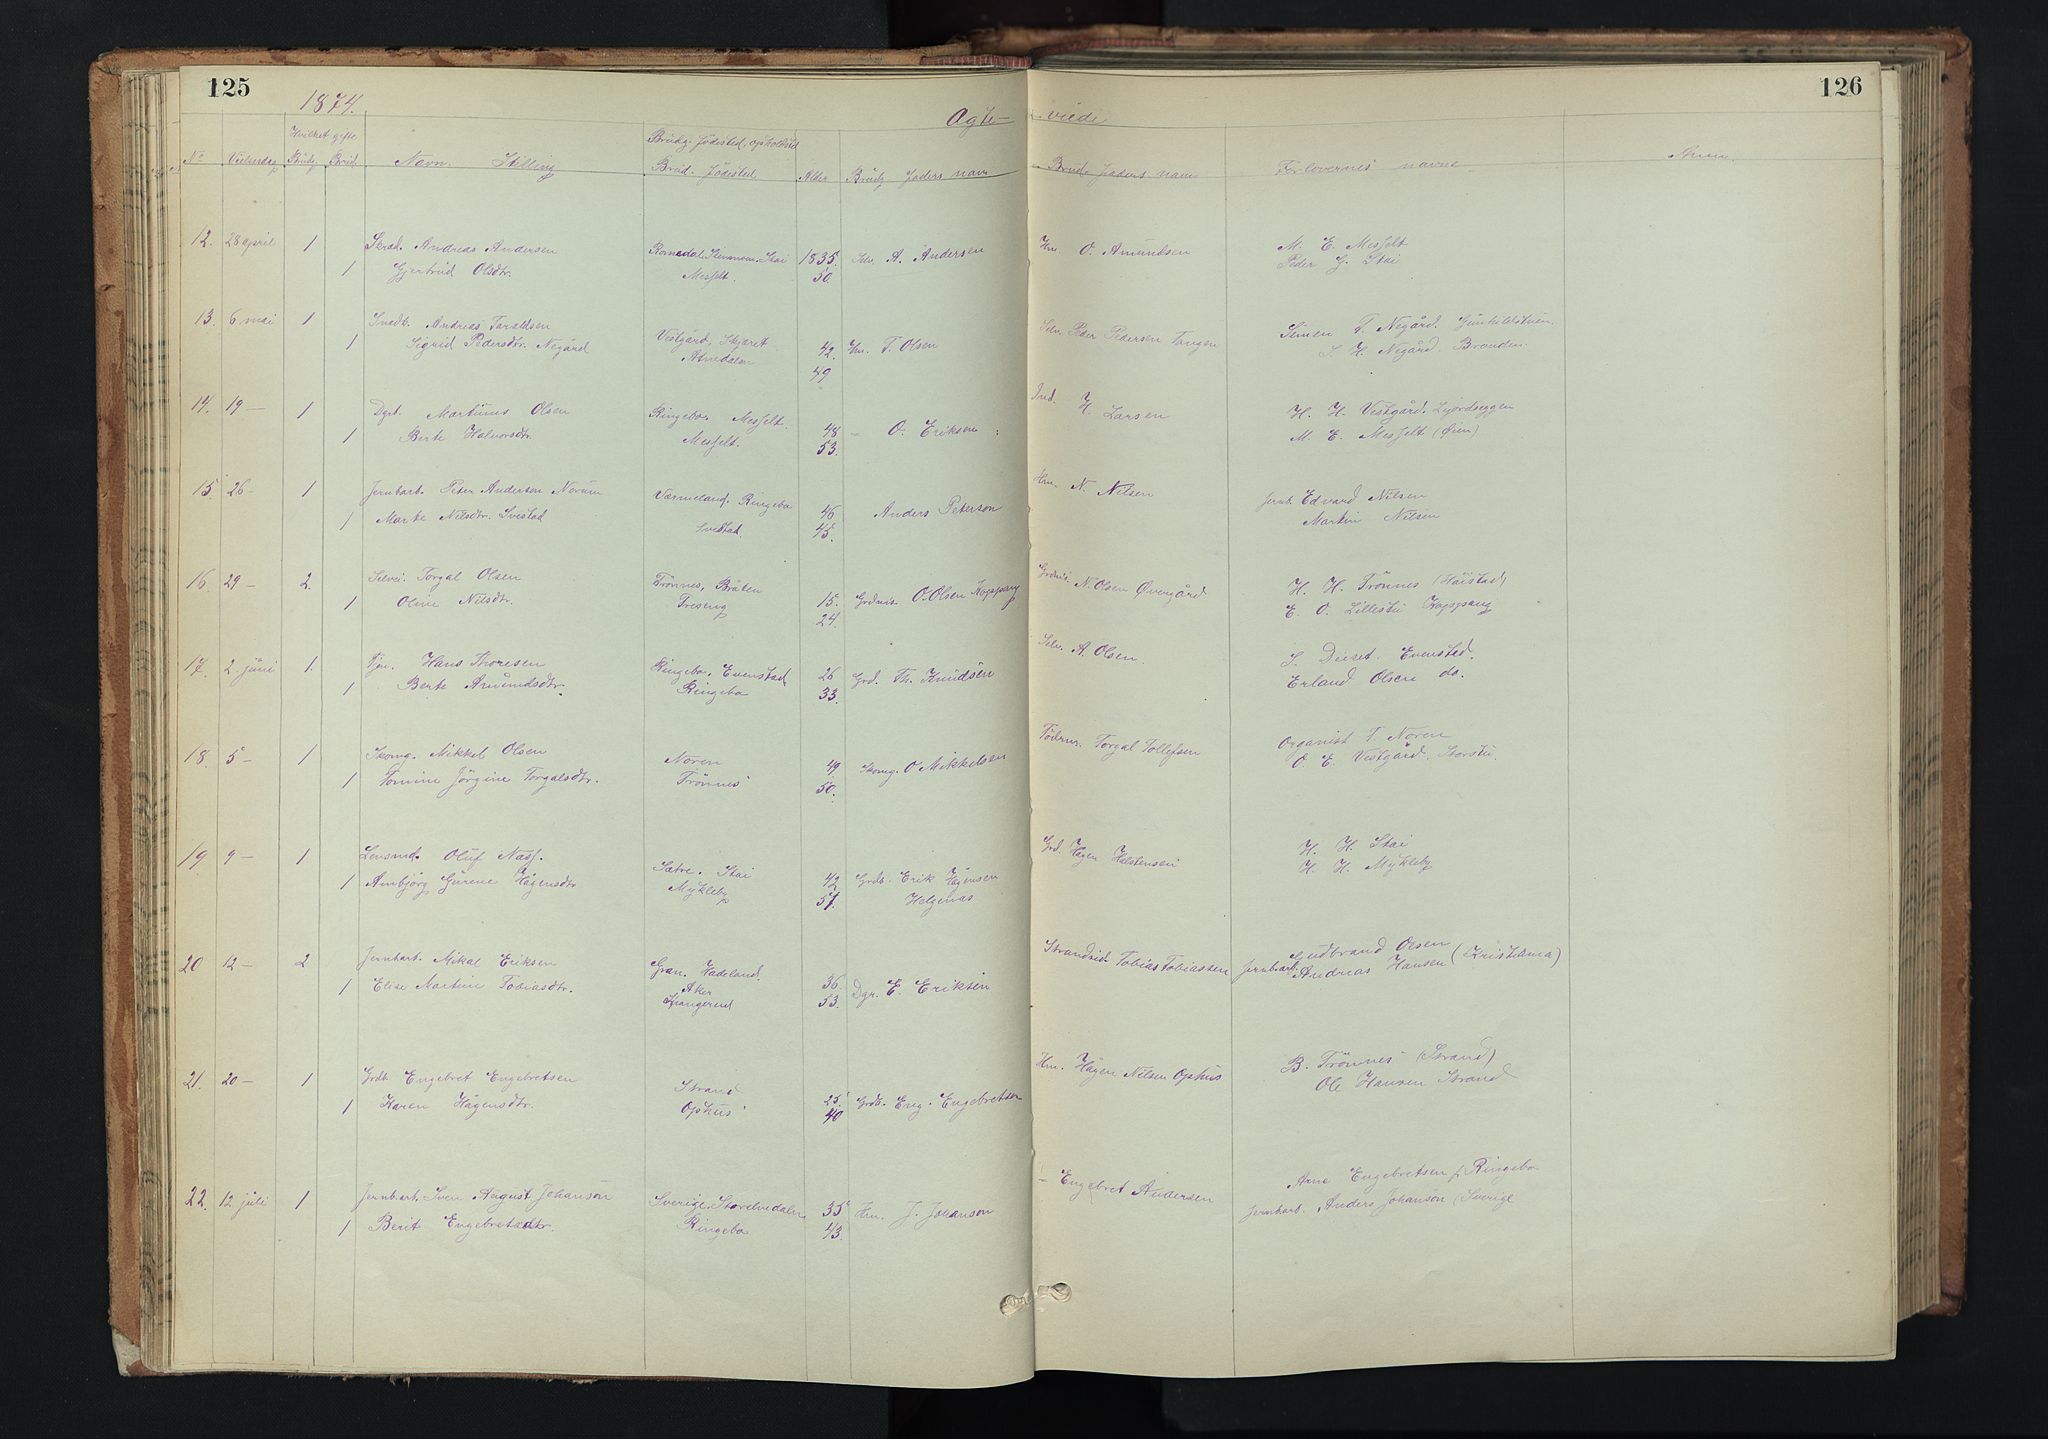 125
126
1874.
Ægte- viede
No Vielsesdag Hvilket gifte Brudg. Brud. Navn. Stilling Brudg. Födested, opholdssted Brud. Födested. Alder Brudg faders navn Brud. faders navn Forlovernes navne Anm.
12. 28 april 1 Skræd. Andreas Andersen Romedal. Stai 1835. A. Andersen Hm. O. Amundsen M. E. Messelt
1 Gjertrud Olsdtr. Messelt. 50. Peder G. Stai
13. 6 mai 1 Snedk. Andreas Taraldsen Vestgård, Skjæret 42. Hm. T. Olsen Selv. Peder Pedersen Tangen Simen T. Negård. Gunhildstuen
1 Sigrid Pedersdtr. Negård Atnedalen 49 S. H. Negård Brænden
14. 19 — 1 Dgrl. Martinus Olsen Ringebo. Messelt. 48 — O. Eriksen Ind. H. Larsen H. H. Vestgård.
1 Berte Halvorsdtr. Messelt. 53. M. E. Messelt (Øien)
15. 26 - 1 Jernbarb. Peter Anderson Norum Værmeland. Ringebo 46 Anders Peterson Hm. N. Nilsen Jernb. Edvard Nilsen
1 Marte Nilsdtr. Svestad Svestad. 45. Martin Nilsen
16 29 - 2. Selvei. Torgal Olsen Trönnes, Bråten 15. Grdmis O. Olsen Koppang Grdmis. N. Olsen Øvergård H. H. Trönnes (Haistad)
1 Oline Nilsdtr. Treseng 24. E. O. Lillestu Koppang
17 2 juni 1. Tjn. Hans Thoresen Ringebo, Evenstad 26 Grd. Th. Knudsen Selv. A. Olsen. S. Dieset. Evenstad.
1 Berte Amundsdtr. Ringebo 33. Erland Olsen do.
18. 5 - 1 Skomg. Mikkel Olsen Noren 49 Skomg. O Mikkelsen Torgal Tollefsen Organist T. Noren
1 Tomine Jörgine Torgalsdtr. Trönnes 50. O. E. Vestgård. Storstu.
19 9 — 1 Lensmd. Oluf Næss. Sætre. Stai 42 Grdb. Erik Hågensen Grd. Hågen Halstensen H. H. Stai
1 Ambjörg Gurene Hågensdtr Mykleby 57. Helgenæs H. H. Mykleby
20 12 — 2 Jernbarb. Mikal Eriksen Gran. Hadeland. 36. Dgr. E. Eriksen Strandsid Tobias Tobiassen Gudbrand Olsen
1 Elise Martine Tobiasdtr. Aker 53. Jernbarb. Andreas Hansen (Kristiania)
Spangerud
21. 20 — 1 Grdb. Engebret Engebretsen Strand 25. Grdb. Eng. Engebretsen Hm. Hågen Nilsen Ophus B. Trönnes (Strand)
1 Karen Hågensdtr. Ophus 40 Ole Hansen Strand
22. 12 juli 1 Jernbarb. Sven August Johanson Sverige. Storelvedalen 35 Hm. J. Johanson — Engebret Andersen Arne Engebretsen f. Ringebo
1 Berit Engebretsdtr. Ringebo 43. Jernbarb. Anders Johanson (Sverige